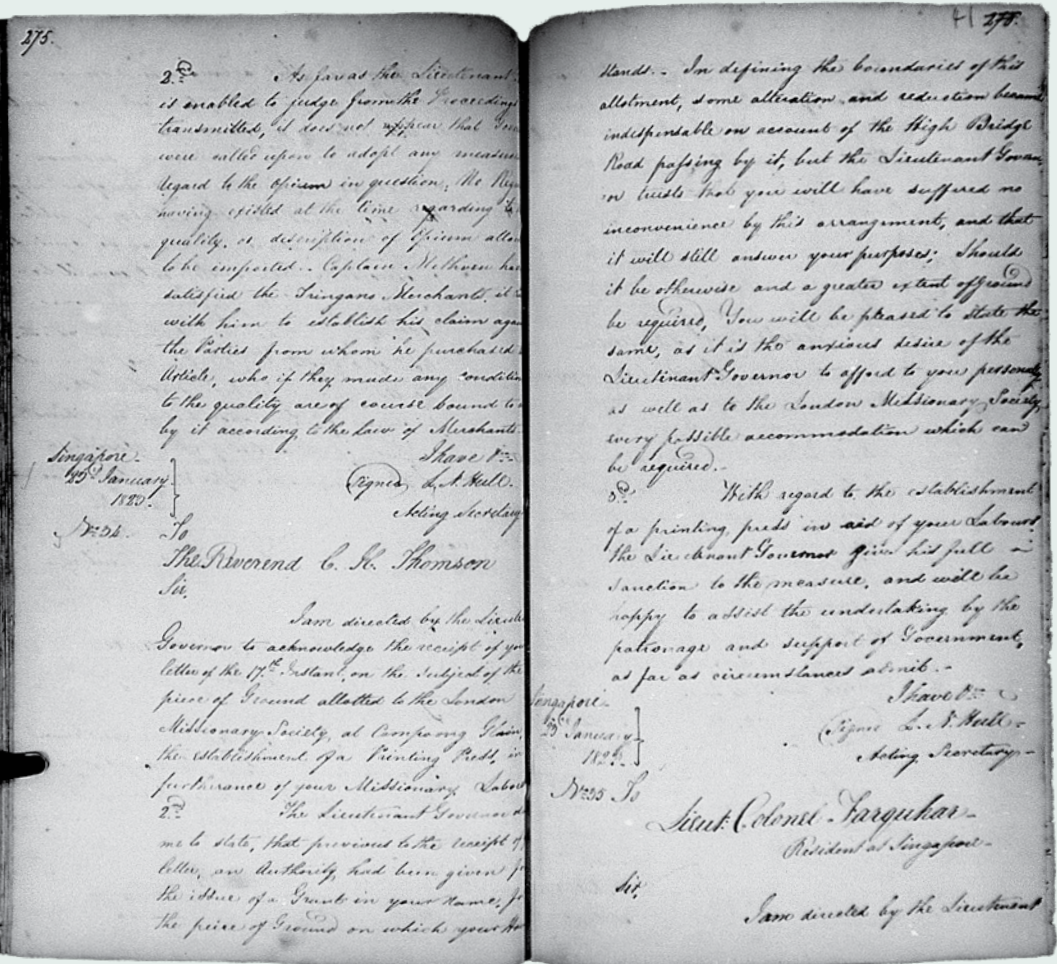 275.
2.d As far as the Lieutenant
is enabled to judge from the Proceedings
transmitted, it does not appear that
were called upon to adopt any measure
regard to the Opium in question; No
having existed at the time regarding
quality, or description of Opium
to be imported. Captain Methven
satisfied the Tringano Merchants, it
with him to establish his claim
the Parties from whom he purchased
Article, who if they made any condition
to the quality are of course bound
by it according to the Law of Merchants.
I have &c
Signed L. N. Hull
Acting Secretary
Singapore
23d January
1823.
No. 34. To
The Reverend C. H. Thomson
Sir,
I am directed by the
Governor to acknowledge the receipt of
letter of the 17th Instant, on the Subject of the
piece of Ground allotted to the London
Missionary Society, at Campong Glam,
the establishment of a Printing Press, in
furtherance of your Missionary
2.d The Lieutenant Governor
me to state, that previous to the receipt of
letter, an Authority had been given
the issue of a Grant in your Name,
the peice of Ground on which your
41 275.
stands. - In defining the boundaries of this
allotment, some alteration and reduction became
indispensable on account of the High Bridge
Road passing by it, but the Lieutenant Govern-
or trusts that you will have suffered no
inconvenience by this arrangement, and that
it will still answer your purposes; Should
it be otherwise and a greater extent of Ground
be required, You will be pleased to state the
same, as it is the anxious desire of the
Lieutenant Governor to afford to you personally
as well as to the London Missionary Society,
every possible accommodation which can
be required.
3.d With regard to the establishment
of a printing press in aid of your Labours,
the Lieutenant Governor give his full
sanction to the measure, and will be
happy to assist the undertaking by the
patronage and support of Government,
as far as circumstances admit. -
I have &c
Signed L. N. Hull
Acting Secretary
Singapore
23d January
1823.
No 35 To
Lieut. Colonel Farquhar
Resident at Singapore
Sir,
I am directed by the Lieutenant